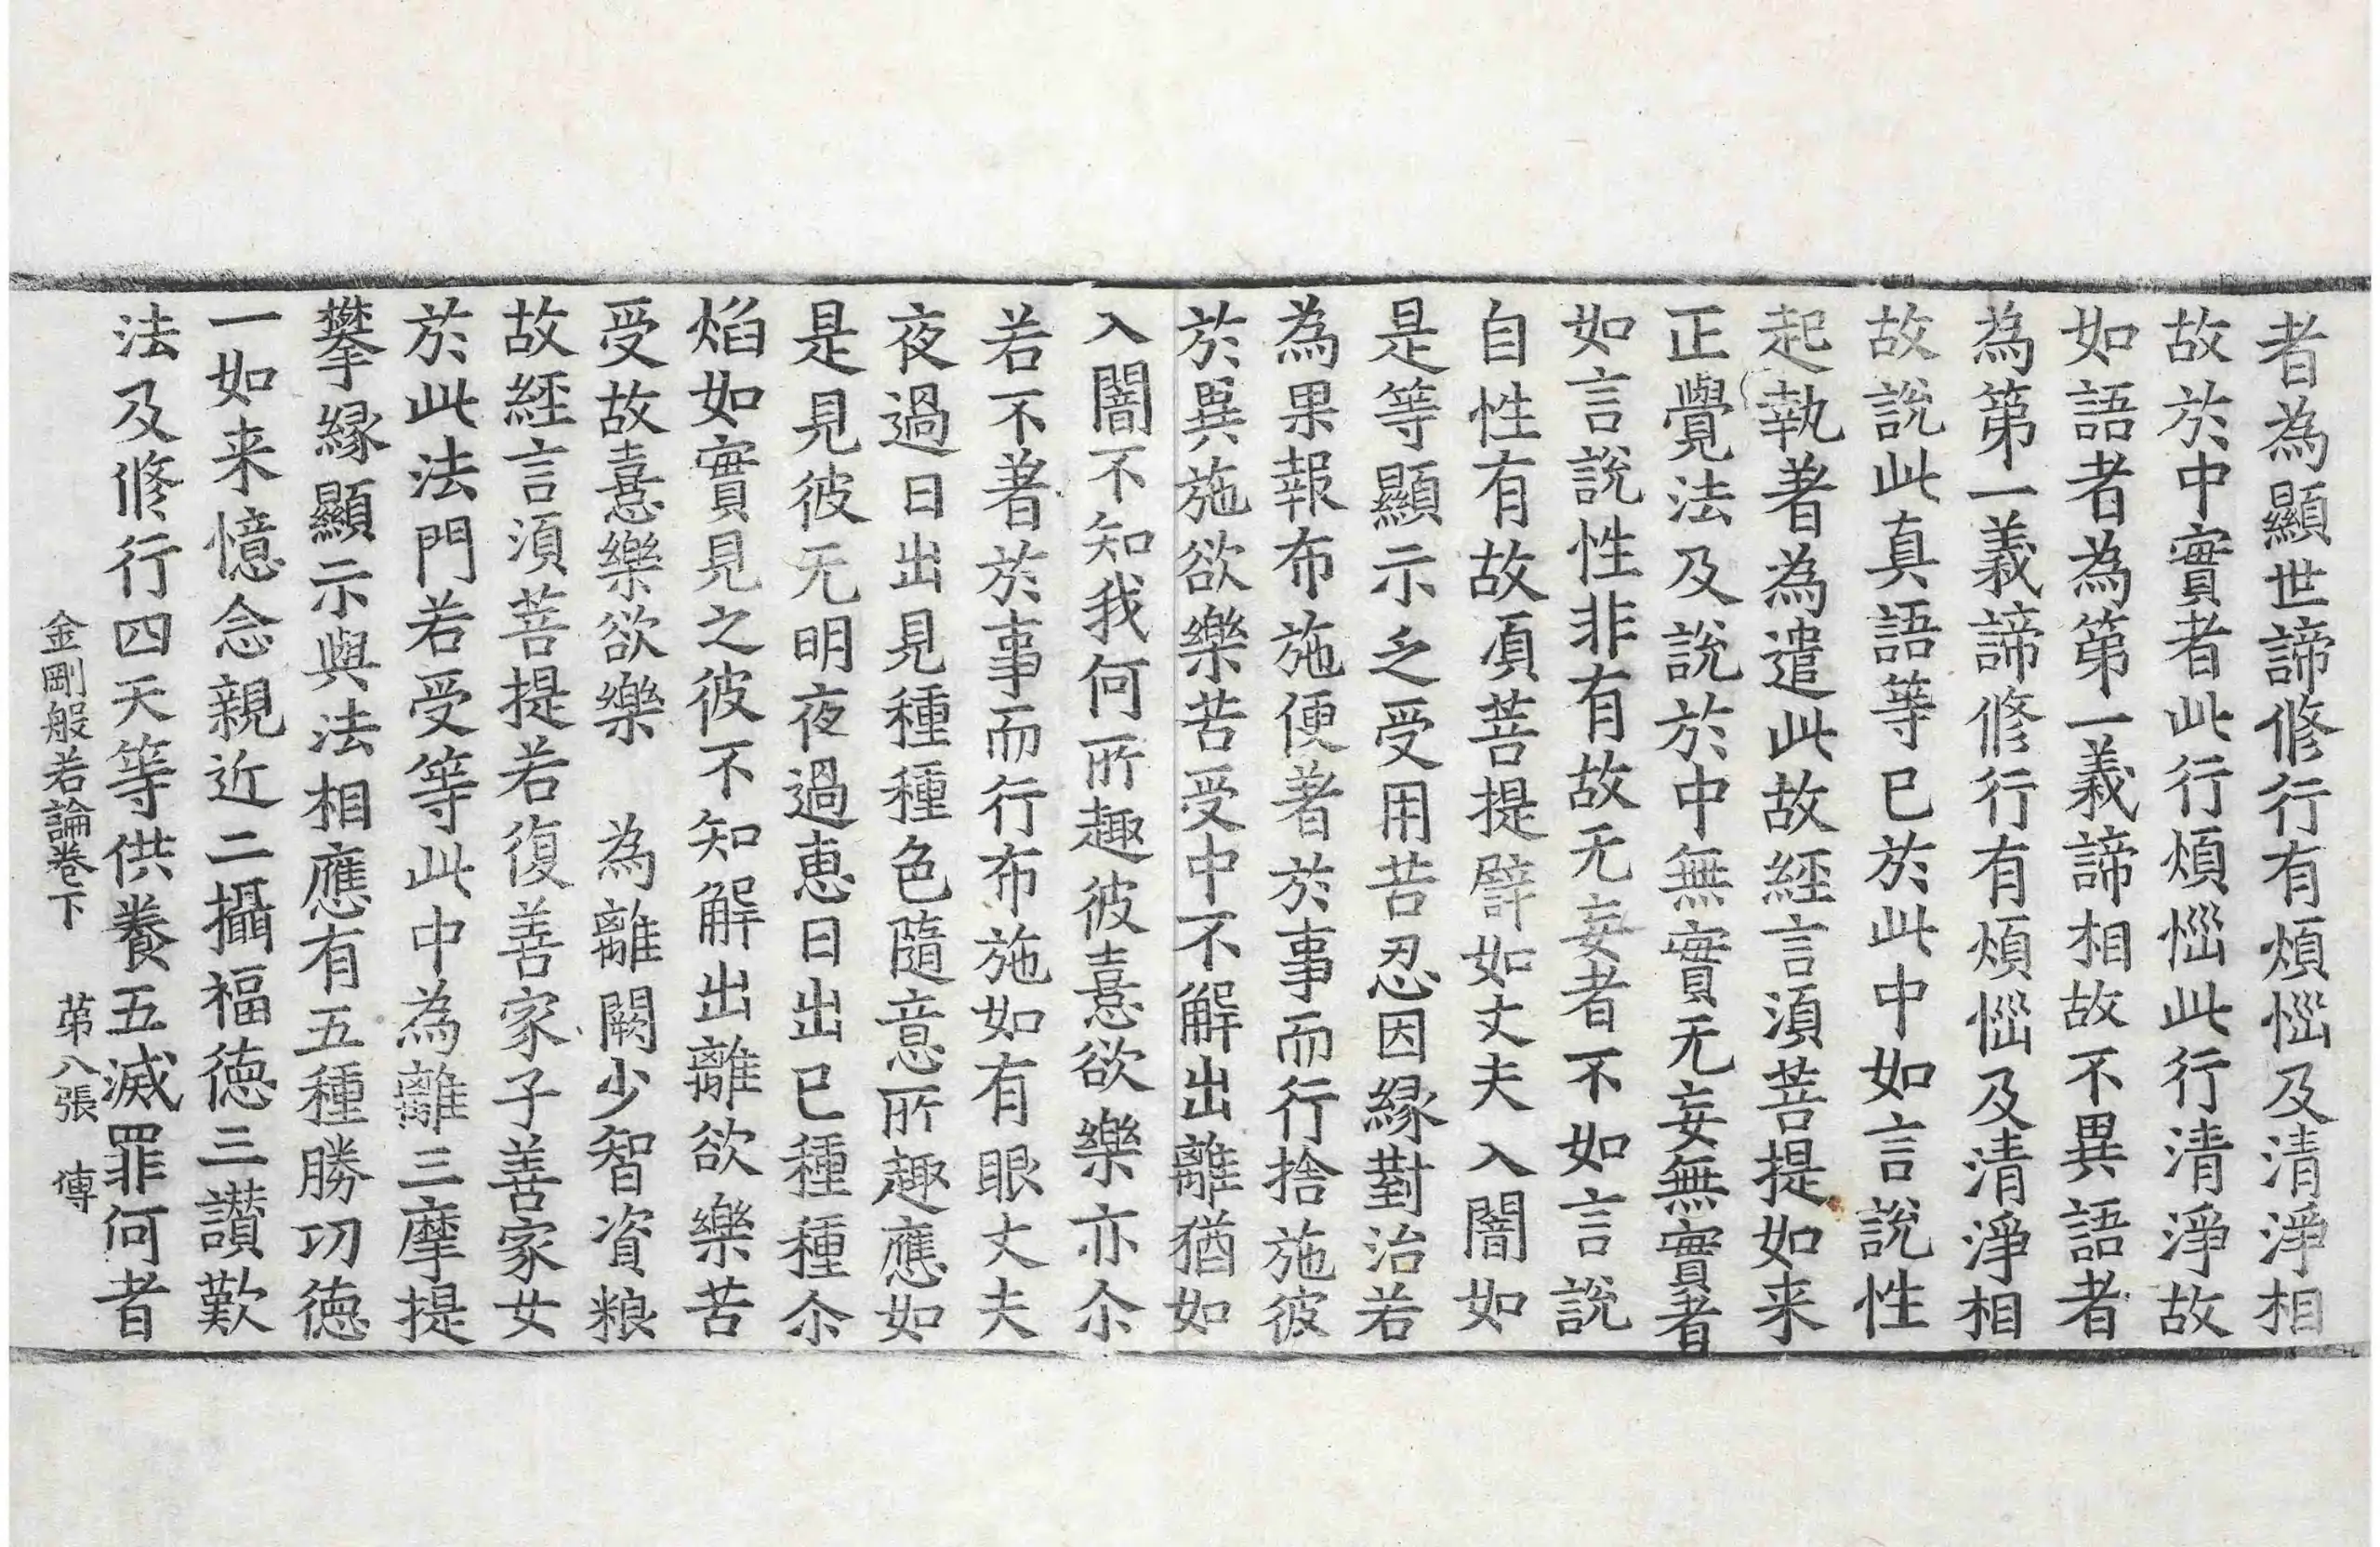 者為顯世諦修行有煩惱及清淨相
故於中實者此行煩惱此行清淨故
如語者為第一義諦相故不異語者
為第一義諦修行有煩惱及清淨相
故說此真語等已於此中如言說性
起執著為遣此故經言湏菩提如来
正覺法及說於中無實无妄無實者
如言說性非有故无妄者不如言說
自性有故湏菩提譬如丈夫入闇如
是等顯示乏受用苦忍因緣對治若
為果報布施便著於事而行捨施彼
於異施欲樂苦受中不解出離猶如
入闇不知我何所趣彼憙欲樂亦尒
若不著於事而行布施如有眼丈夫
夜過日出見種種色隨意所趣應如
是見彼无明夜過恵日出已種種尒
焰如實見之彼不知解出離欲樂苦
受故憙樂欲樂　為離闕少智資粮
故經言湏菩提若復善家子善家女
於此法門若受等此中為離三摩提
攀緣顯示與法相應有五種勝功徳
一如来憶念親近二攝福徳三讃歎
法及修行四天等供養五滅罪何者
金剛般若論卷下　第八張　傳